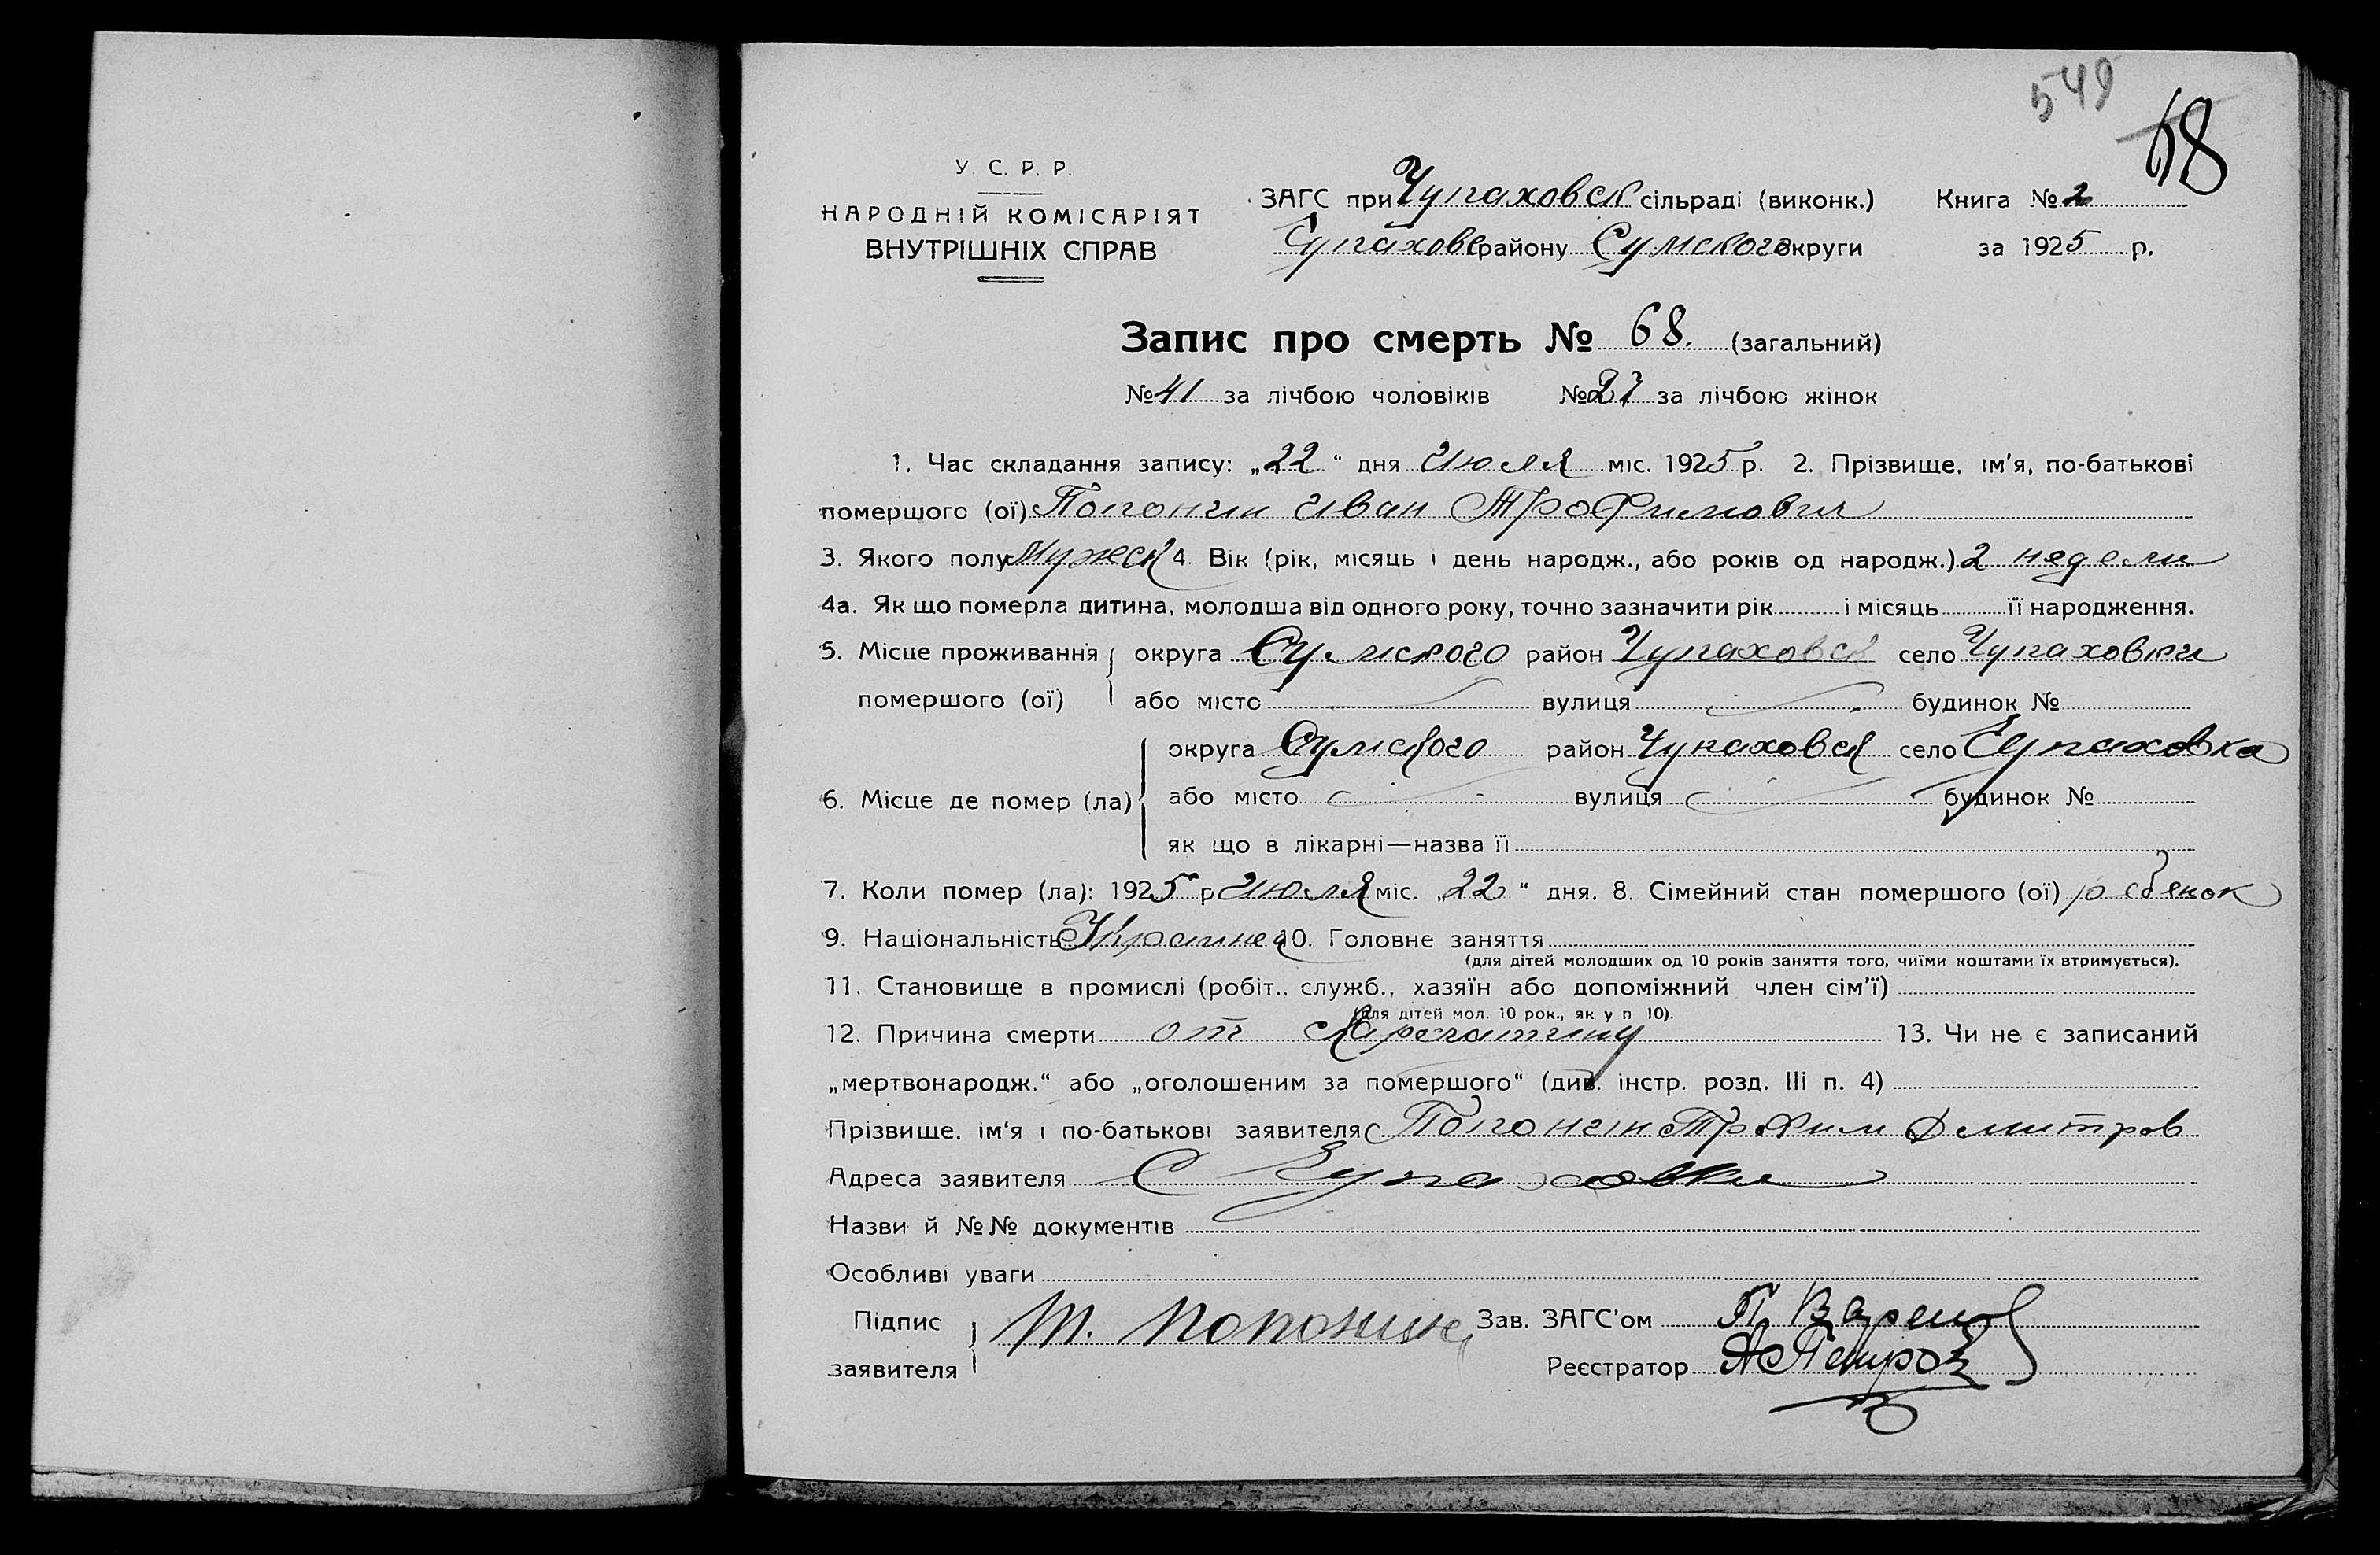 549
68
У. С. Р. Р.
НАРОДНІЙ КОМІСАРІЯТ
ВНУТРІШНІХ СПРАВ
ЗАГС при Чупаховск сільраді (виконк.) Книга № 2
Чупаховс району Сумского округи за 1925 р.
Запис про смерть № 68. (загальний)
№ 41 за лічбою чоловіків № 27 за лічбою жінок
1. Час складання запису: „22“ дня Июля міс. 1925 р. 2. Прізвище, ім'я, по-батькові
помершого (ої) Попонин Иван Трофимович
3. Якого полу Мужеск 4. Вік (рік, місяць і день народж., або років од народж.) 2 недели
4а. Як що померла дитина, молодша від одного року, точно зазначити рік і місяць її народження.
5. Місце проживання округа Сумского район Чупаховск село Чупаховки
помершого (ої) або місто вулиця будинок №
округа Сумского район Чупаховск село Чупаховка
6. Місце де помер (ла) або місто вулиця будинок №
як що в лікарні—назва її
7. Коли помер (ла): 1925 р Июля міс. „22“ дня. 8. Сімейний стан помершого (ої) ребенок
9. Національність Украинец 10. Головне заняття
(для дітей молодших од 10 років заняття того, чиїми коштами їх втримується).
11. Становище в промислі (робіт., служб., хазяїн або допоміжний член сім'ї)
(для дітей мол. 10 рок., як у п 10).
12. Причина смерти от 13. Чи не є записаний
„мертвонародж.“ або „оголошеним за помершого“ (див. інстр. розд. III п. 4)
Прізвище, ім'я і по-батькові заявителя Попонин Трофим Дмитров
Адреса заявителя С Чупаховки
Назви й №№ документів
Особливі уваги
Підпис заявителя Т. Попонин Зав. ЗАГС'ом П
Реєстратор Петров